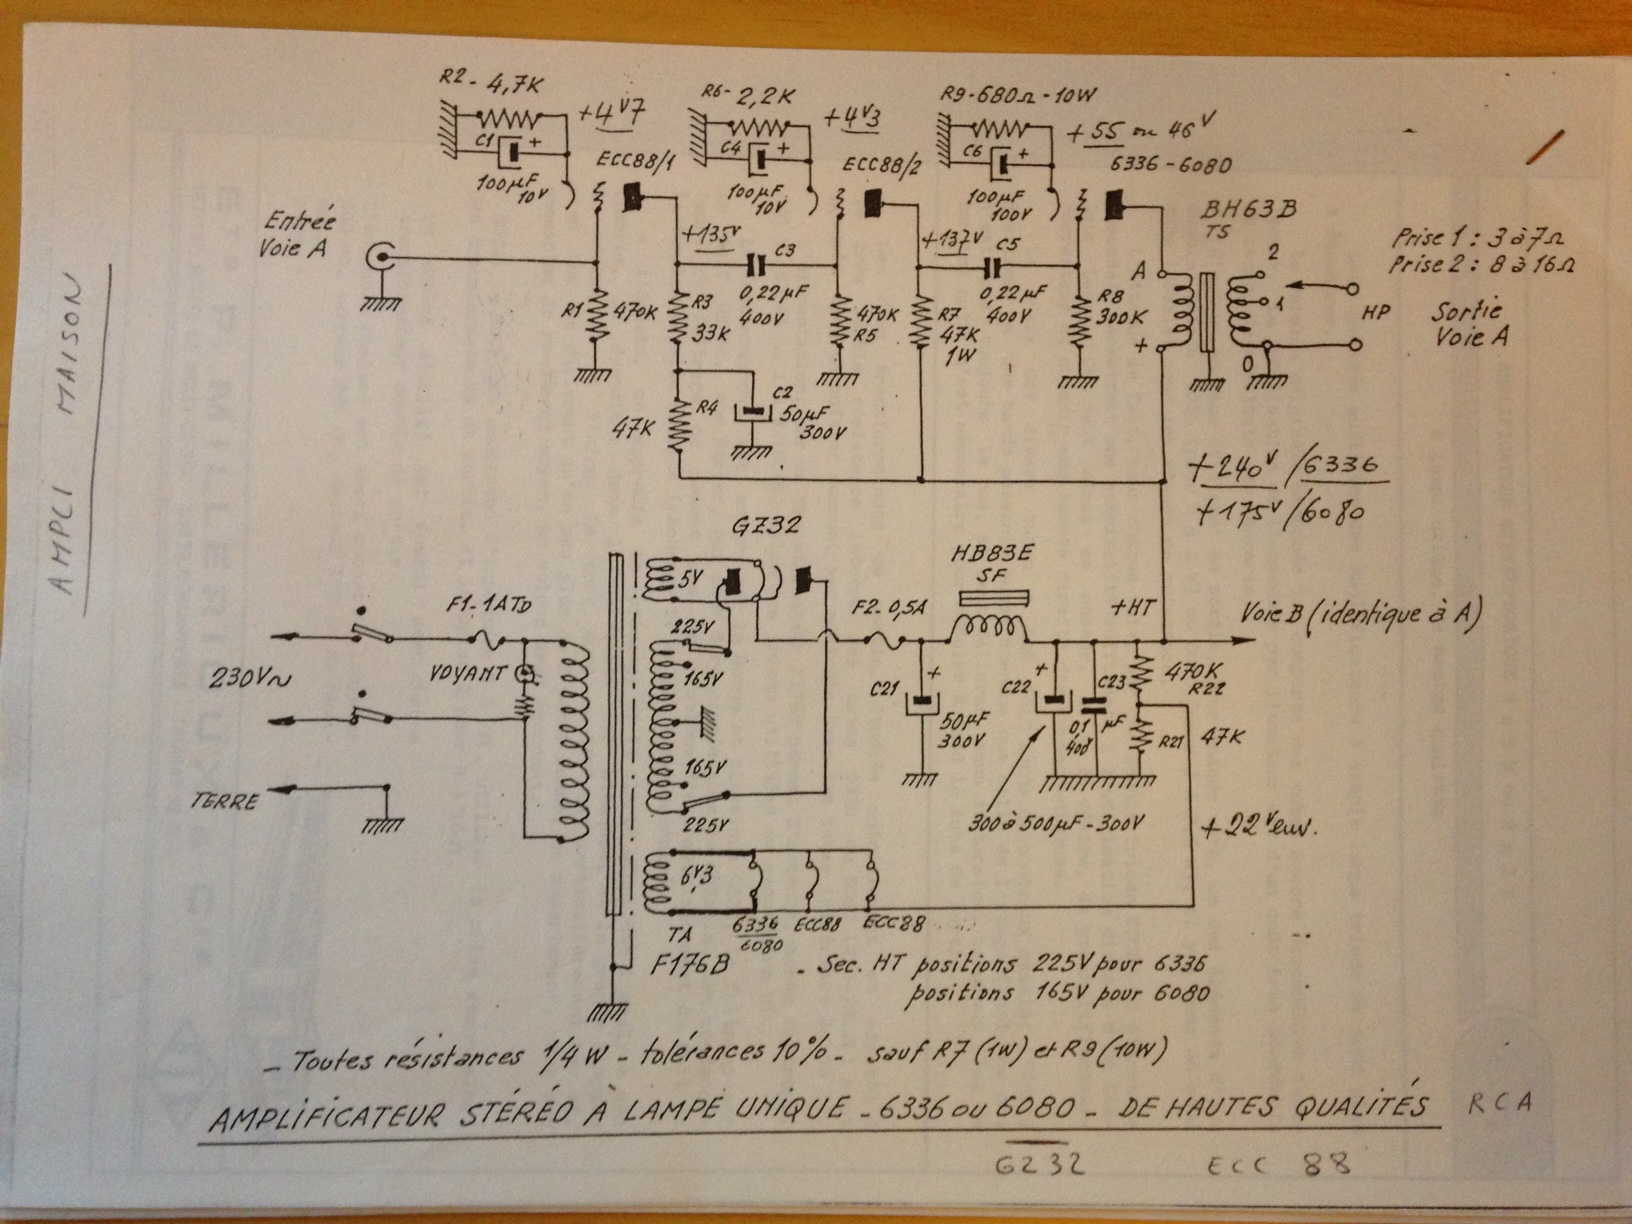 AMPLI MAISON
R2 - 4,7K
+4V7
C1
+
100µF
10V
ECC88/1
R6 - 2,2K
+4V3
C4
+
100µF
10V
ECC88/2
R9 - 680Ω - 10W
+55 ou 46V
C6
+
100µF
100V
6336 - 6080
Entrée
Voie A
+135V
C3
0,22µF
400V
+137V
C5
0,22µF
400V
R1
470K
R3
33K
470K
R5
R7
47K
1W
R8
300K
BH63B
TS
A
+
2
1
0
Prise 1 : 3 à 7Ω
Prise 2 : 8 à 16Ω
HP
Sortie
Voie A
R4
47K
C2
50µF
300V
+240V /6336
+175V /6080
GZ32
5V
225V
165V
165V
225V
F1 - 1ATD
VOYANT
230V~
TERRE
F2 - 0,5A
HB83E
SF
+HT
Voie B (identique à A)
C21
+
50µF
300V
C22
+
C23
0,1 µF
400
470K
R22
R21
47K
300 à 500µF - 300V
+22V env.
6V3
TA
F176B
6336
6080
ECC88
ECC88
- Sec. HT positions 225V pour 6336
positions 165V pour 6080
- Toutes résistances 1/4 W - tolérances 10% - sauf R7 (1W) et R9 (10W)
AMPLIFICATEUR STÉRÉO À LAMPE UNIQUE - 6336 ou 6080 - DE HAUTES QUALITÉS
RCA
GZ32
ECC 88